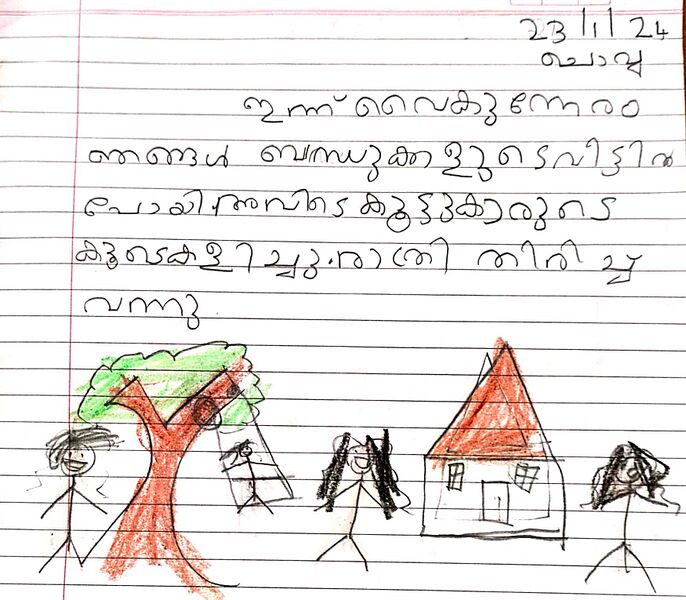 23/1/24
ചൊവ്വ
ഇന്ന് വൈകുന്നേരം
ഞങ്ങൾ ബന്ധുക്കളുടെ വീട്ടിൽ
പോയി. അവിടെ കൂട്ടുകാരുടെ
കൂടെ കളിച്ചു. രാത്രി തിരിച്ച്
വന്നു